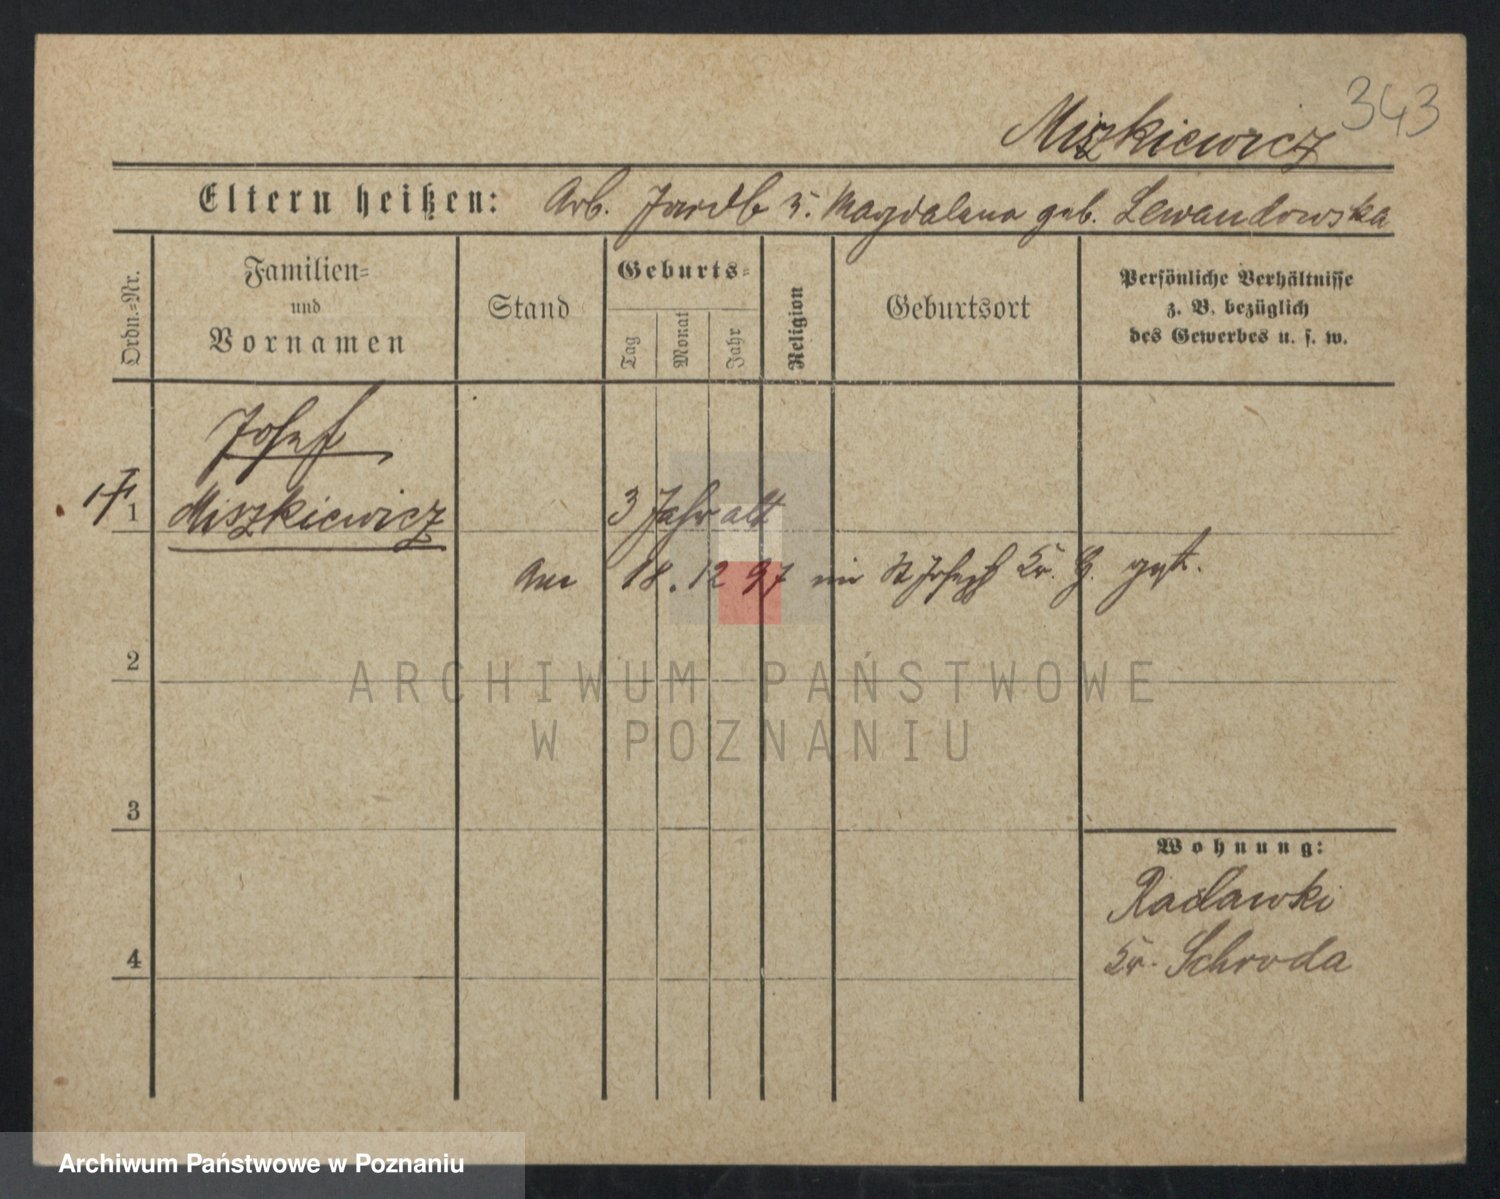 343
Miszkiewicz
Eltern heißen: Arb. Jacob u. Magdalena geb. Lewandowska
Ordn.-Nr.
Familien-
und
Vornamen
Stand
Geburts-
Tag
Monat
Jahr
Religion
Geburtsort
Persönliche Verhältnisse
z. B. bezüglich
des Gewerbes u. s. w.
Josef
1 Miszkiewicz 3 Jahr alt
am 18. 12 97 im St Joseph Kr. H. gest.
2
ARCHIWUM PAŃSTWOWE
W POZNANIU
3
Wohnung:
Raclawki
4 Kr. Schroda
Archiwum Państwowe w Poznaniu